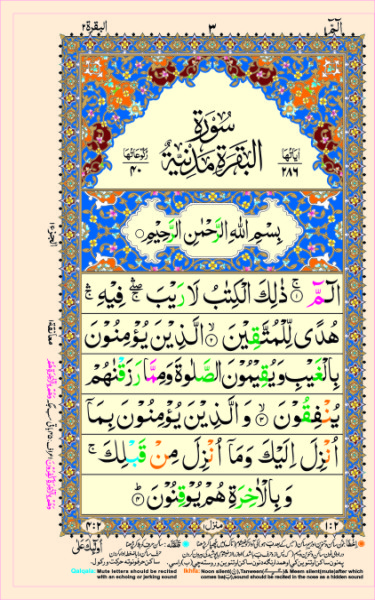 الٓمّٓ ١
٣
البقرة ٢
سُوْرَةُ
الْبَقَرَةِ مَدَنِيَّةٌ
اٰيَاتُهَا
٢٨٦
رُكُوْعَاتُهَا
٤٠
بِسْمِ اللّٰهِ الرَّحْمٰنِ الرَّحِيْمِ
الٓمّٓ ۚ‏ ﴿۱﴾ ذٰلِكَ الْكِتٰبُ لَا رَيْبَ ۛۖۚ فِيْهِ ۛۚ
هُدًى لِّلْمُتَّقِيْنَ ۙ‏ ﴿۲﴾ الَّذِيْنَ يُؤْمِنُوْنَ
بِالْغَيْبِ وَيُقِيْمُوْنَ الصَّلٰوةَ وَمِمَّا رَزَقْنٰهُمْ
يُنْفِقُوْنَ ۙ‏ ﴿۳﴾ وَالَّذِيْنَ يُؤْمِنُوْنَ بِمَآ
اُنْزِلَ اِلَيْكَ وَمَآ اُنْزِلَ مِنْ قَبْلِكَ ۚ
وَبِالْاٰخِرَةِ هُمْ يُوْقِنُوْنَ ؕ‏ ﴿۴﴾
٢:١
منزل ١
٢:٤
اُولٰٓئِكَ عَلٰى
Qalqala: Mute letters should be recited with an echoing or jerking sound
Ikhfa: Noon silent
& Meem silent
after which comes ba
sound should be recited in the nose as a hidden sound